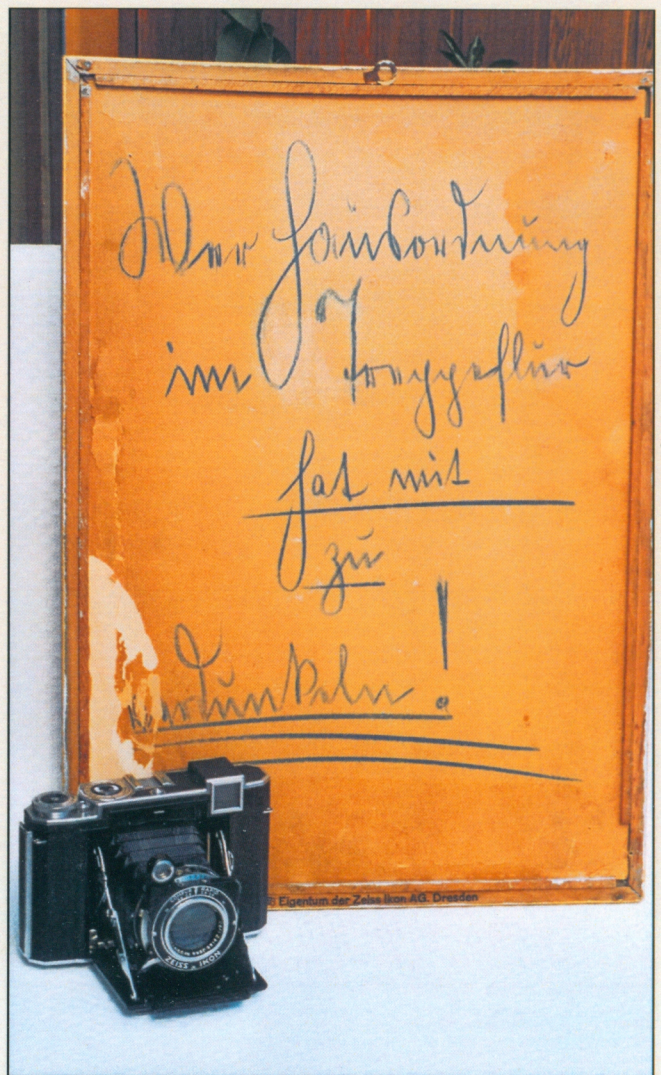 Wer Hausordnung
im Treppeflur
hat mit
zu
verdunkeln!
Eigentum der Zeiss Ikon AG. Dresden
ZEISS IKON